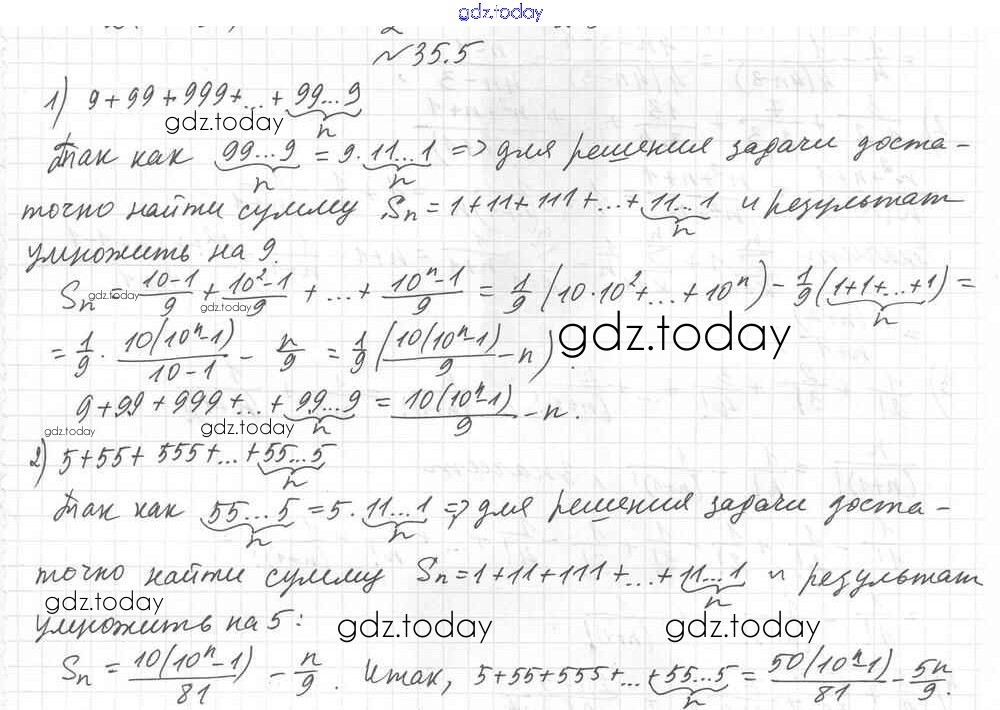 gdz.today
№35.5
1) 9+99+999+...+99...9
n
gdz.today
Так как 99...9 = 9·11...1 => для решения задачи доста-
n n
точно найти сумму Sn=1+11+111+...+11...1 и результат
n
умножить на 9.
Sn = (10-1)/9 + (10²-1)/9 + ... + (10ⁿ-1)/9 = 1/9 (10·10²+...+10ⁿ) - 1/9 (1+1+...+1) =
gdz.today
n
= 1/9 · 10(10ⁿ-1)/(10-1) - n/9 = 1/9 (10(10ⁿ-1)/9 - n).
gdz.today
9+99+999+...+99...9 = 10(10ⁿ-1)/9 - n.
n
gdz.today gdz.today
2) 5+55+555+...+55...5
n
Так как 55...5 = 5·11...1 => для решения задачи доста-
n n
точно найти сумму Sn=1+11+111+...+11...1 и результат
n
gdz.today
умножить на 5:
gdz.today gdz.today
Sn = 10(10ⁿ-1)/81 - n/9. Итак, 5+55+555+...+55...5 = 50(10ⁿ-1)/81 - 5n/9.
n